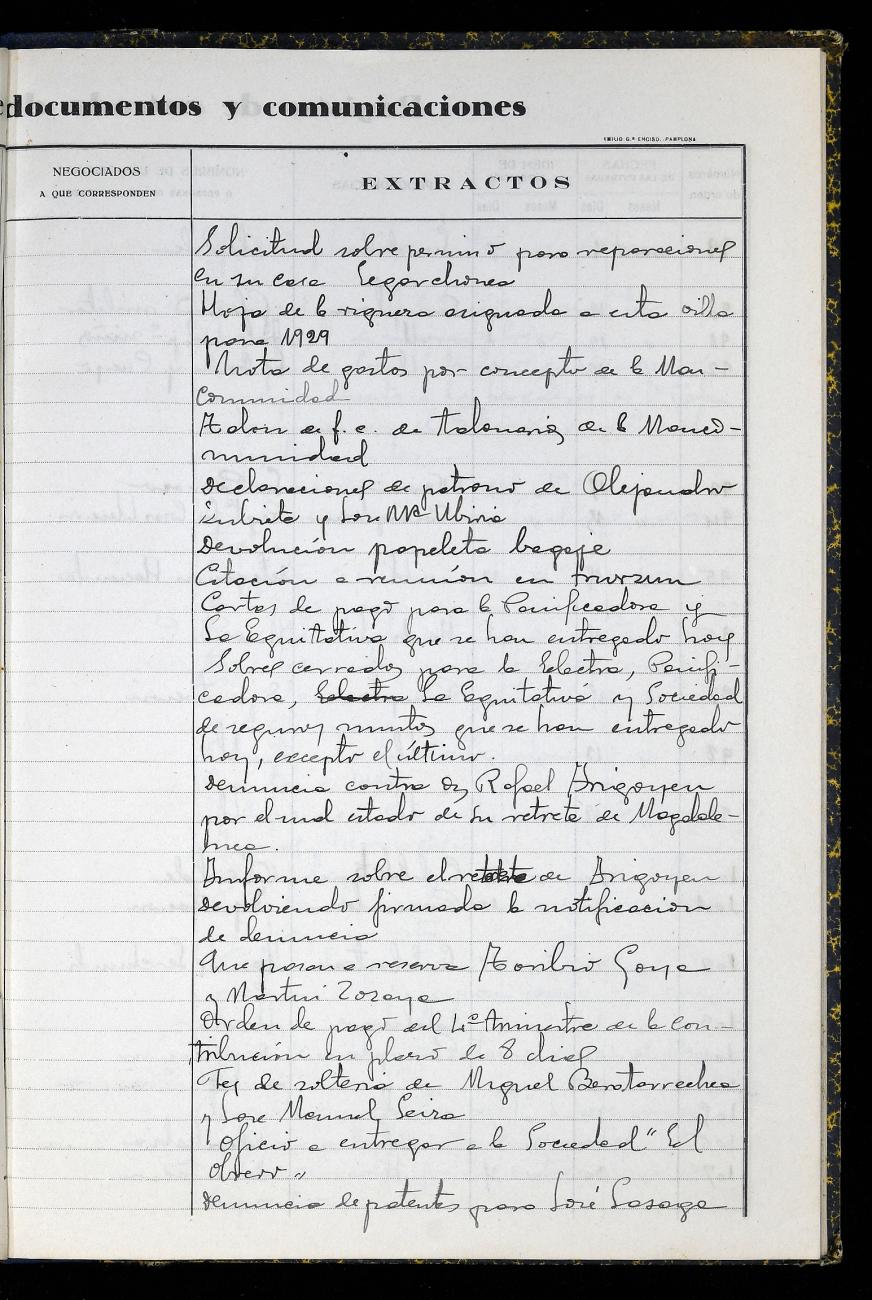 documentos y comunicaciones
EMILIO G.ª ENCISO. PAMPLONA
NEGOCIADOS
A QUE CORRESPONDEN
EXTRACTOS
Solicitud sobre permiso para reparaciones
en su casa
Hoja de la riqueza asignada a esta villa
para 1929
Nota de gastos por concepto de la Man-
comunidad
Talon de f. c. de talonarios de la Manco-
munidad
Declaraciones de patrono de Alejandro
Zubieta y Jose Mª Ubiria
Devolución papeleta bagaje
Citación a reunión en Irurzun
Cartas de pago para la Panificadora y
La Equitativa que se han entregado hoy
Sobres cerrados para la Electra, Panifi-
cadora, Electra La Equitativa y Sociedad
de seguros mutuos que se han entregado
hoy, excepto el último.
Denuncia contra D. Rafael Irigoyen
por el mal estado de su retrete de Magdale-
nea.
Informe sobre el retrete de Irigoyen
Devolviendo firmada la notificacion
de denuncia
Que pasan a reserva Toribio Goya
y Martin Zozaya
Orden de pago del 4º trimestre de la con-
tribución en plazo de 8 dias
Fes de solteria de Miguel Beratarrechea
y Jose Manuel Seira
Oficio a entregar a la Sociedad "El
Obrero"
Denuncia de patentes para José Lasaga